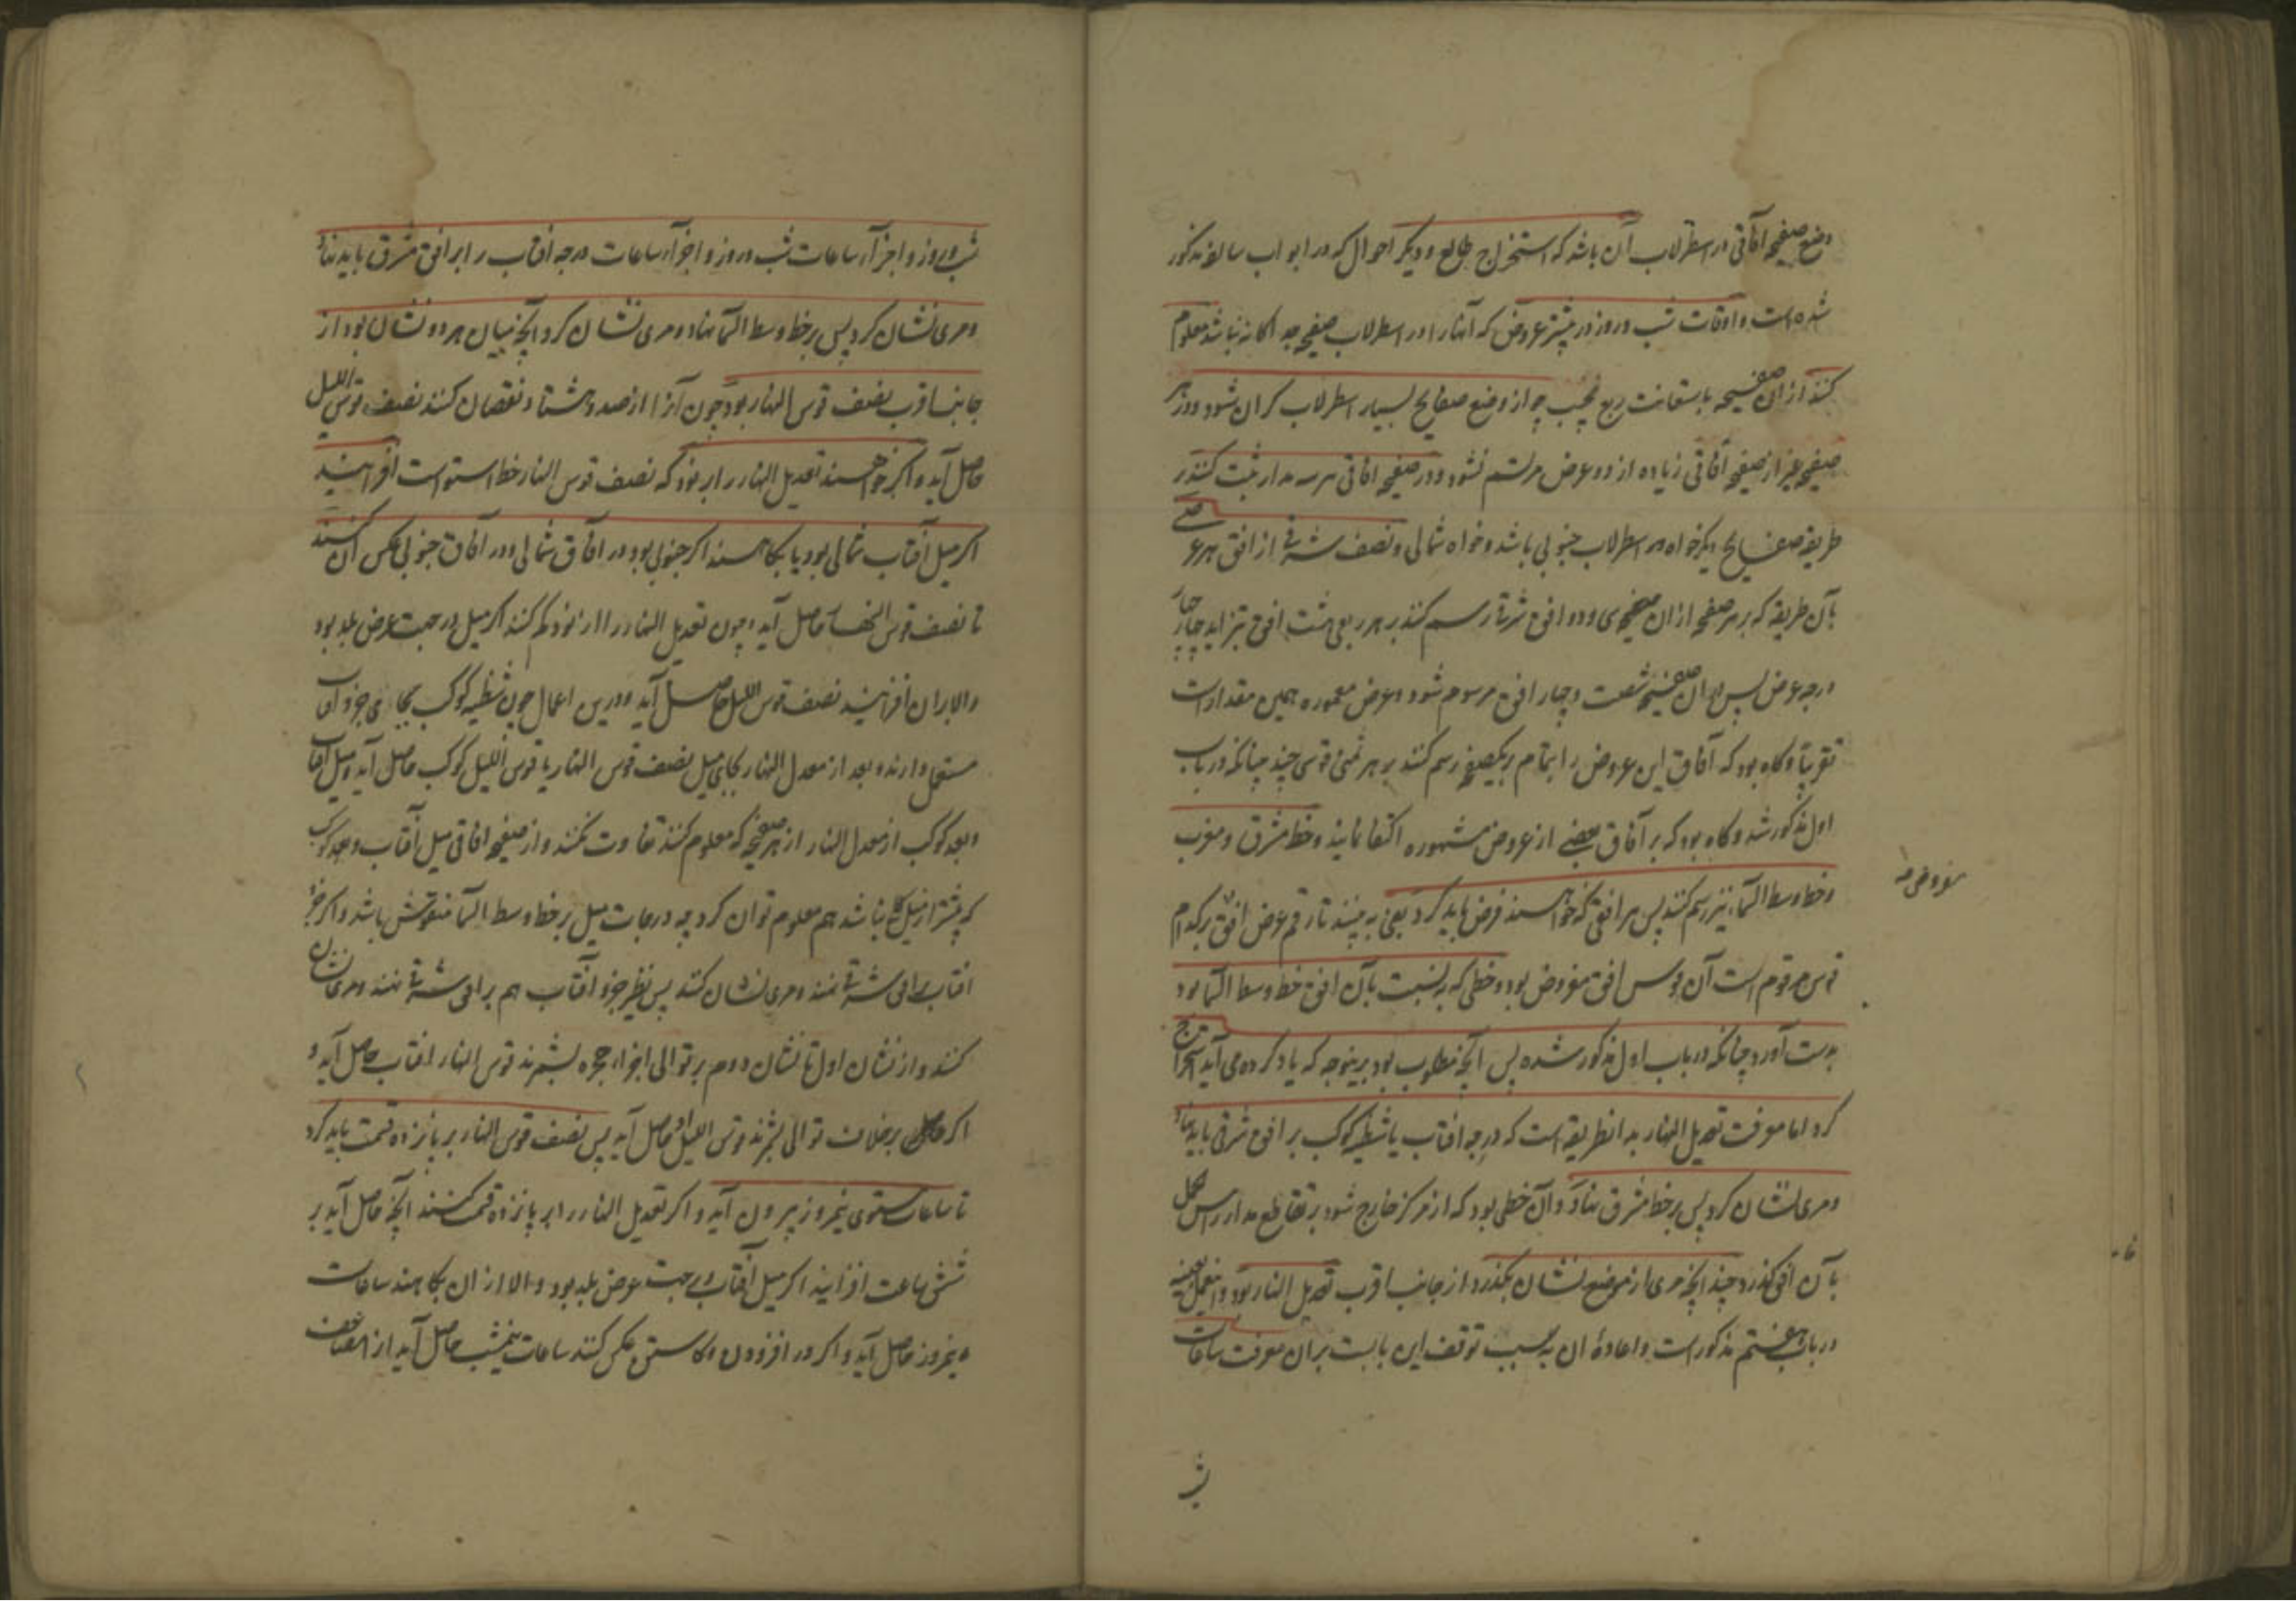 وضع صفیحه آفاقی در اسطرلاب آن باشد که استخراج طالع و دیگر احوال که در ابواب سالفه مذکور
شده است و اوقات شب و روز در بیشتر عروض که آنها را در اسطرلاب صفیحه جداگانه نباشد معلوم
کنند از ان صفیحه باستعانت ربع مجیب چه از وضع صفایح بسیار اسطرلاب کران شود و در هر
صفیحه غیر از صفیحه آفاقی زیاده از دو عرض مرتسم نشود و در صفیحه آفاقی هر سه مدار ثبت کنند بر
طریقه صفایح دیگر خواه در اسطرلاب جنوبی باشد و خواه شمالی و نصف شرقی از افق هر عرضی
بآن طریقه که بر هر صفحه از ان صفیحه سی و دو افق شرقا رسم کنند بر هر ربعی هشت افق بتزاید چهار چهار
درجه عرض پس بر ان صفیحه شصت و چهار افق مرسوم شود و عرض معموره همین مقدارست
تقریبا و کاه بود که آفاق این عروض را بتمام بر یکصفحه رسم کنند بر هر ثمنی قوسی چند چنانکه در باب
اول مذکور شد و کاه بود که بر آفاق بعضی از عروض مشهوره اکتفا نمایند و خط مشرق و مغرب
و خط وسط السما نیز رسم کنند پس هر افق که خواهند فرض باید کرد یعنی به بینند تا رقم عرض افق بر کدام
مفروضه
قوس مرقوم است آن قوس افق مفروض بود و خطی که به نسبت بآن افق خط وسط السما بود
بدست آورد چنانکه در باب اول مذکور شده پس آنچه مطلوب بود برینوجه که یاد کرده می آید استخراج
کرد اما معرفت تعدیل النهار بدانطریقه است که درجه آفتاب یا شظیه کوکب بر افق شرقی باید نهاد
و مری نشان کرد پس بر خط مشرق نهاد و آن خطی بود که از مرکز خارج شود بر تقاطع مدار راس الحمل
بآن افق کذرد چند آنچه مری از موضع نشان بکذرد از جانب اقرب تعدیل النهار بود و اینعمل بعینه
در باب هفتم مذکور است و اعاده ان بسبب توقف این بابست بران معرفت ساعات
شب
شب و روز و اجزآء ساعات شب و روز و اجزآء ساعات درجه افتاب را بر افق مشرق باید نهاد
و مری نشان کرد پس بر خط وسط السما نهاد و مری نشان کرد آنچه میان هر دو نشان بود از
جانب اقرب نصف قوس النهار بود چون آنرا از صد و هشتاد نقصان کنند نصف قوس اللیل
حاصل آید و اکر خواهند تعدیل النهار را بر نود که نصف قوس النهار خط استواست افزایند
اکر میل آفتاب شمالی بود یا بکاهند اکر جنوبی بود در آفاق شمالی و در آفاق جنوبی عکس آن کنند
تا نصف قوس النهار حاصل آید و چون تعدیل النهار را از نود کم کنند اکر میل در جهت عرض بلد بود
والا بر ان افزایند نصف قوس اللیل حاصل آید و درین اعمال چون شظیه کوکب بجای جزو آفتاب
مستعمل دارند و بعد از معدل النهار بجای میل نصف قوس النهار یا قوس اللیل کوکب حاصل آید و میل آفتاب
و بعد کوکب از معدل النهار از هر صفحه که معلوم کنند تفاوت نکند و از صفیحه آفاقی میل آفتاب و بعد کوکب
که بیشتر از میل کلی نباشد هم معلوم توان کرد چه درجات میل بر خط وسط السما منقوش باشد و اکر جزو
افتاب بر افق شرقی نهند و مری نشان کنند پس نظیر جزو آفتاب هم بر افق شرقی نهند و مری نشان
کنند و از نشان اول تا نشان دوم بر توالی اجزاء حجره بشمرند قوس النهار افتاب حاصل آید و
اکر بر خلاف توالی بشمرند قوس اللیل او حاصل آید پس نصف قوس النهار بر پانزده قسمت باید کرد
تا ساعات مستوی نیمروز بیرون آید و اکر تعدیل النهار را بر پانزده قسمت کنند آنچه حاصل آید بر
شش ساعت افزایند اکر میل آفتاب در جهت عرض بلد بود و الا از ان بکاهند ساعات
نیمروز حاصل آید و اکر در افزودن و کاستن عکس کنند ساعات نیمشب حاصل آید از